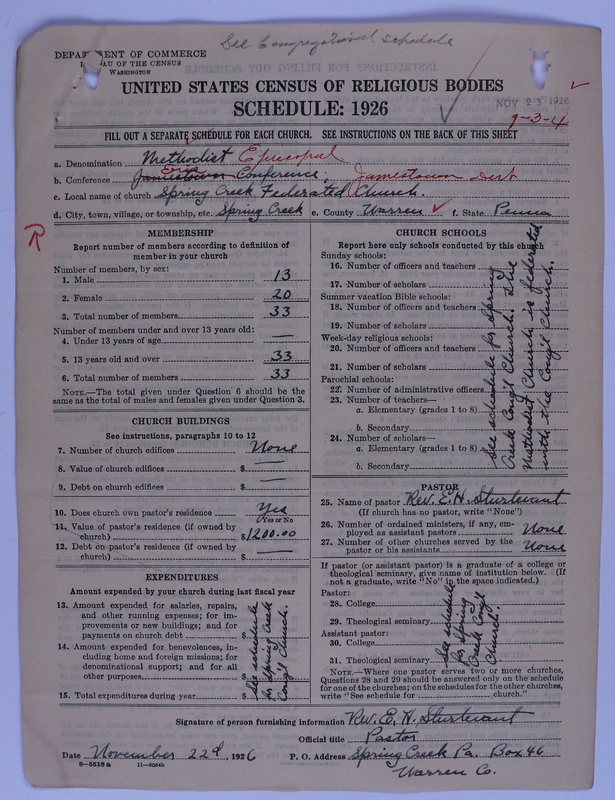 See Congregational schedule
DEPARTMENT OF COMMERCE
BUREAU OF THE CENSUS
WASHINGTON
UNITED STATES CENSUS OF RELIGIOUS BODIES
SCHEDULE: 1926
NOV 23 1926
9-3-4
FILL OUT A SEPARATE SCHEDULE FOR EACH CHURCH. SEE INSTRUCTIONS ON THE BACK OF THIS SHEET
a. Denomination Methodist Episcopal
b. Conference Jamestown Erie Conference, Jamestown Dist
c. Local name of church Spring Creek Federated Church.
d. City, town, village, or township, etc. Spring Creek e. County Warren f. State Penna
R
MEMBERSHIP
Report number of members according to definition of
member in your church
Number of members, by sex:
1. Male 13
2. Female 20
3. Total number of members 33
Number of members under and over 13 years old:
4. Under 13 years of age —
5. 13 years old and over 33
6. Total number of members 33
NOTE.—The total given under Question 6 should be
same as the total of males and females given under Question 3.
CHURCH BUILDINGS
See instructions, paragraphs 10 to 12
7. Number of church edifices None
8. Value of church edifices $ —
9. Debt on church edifices $ —
10. Does church own pastor's residence Yes
Yes or No
11. Value of pastor's residence (if owned by
church) $1200.00
12. Debt on pastor's residence (if owned by
church) $ —
EXPENDITURES
Amount expended by your church during last fiscal year
13. Amount expended for salaries, repairs,
and other running expenses; for im-
provements or new buildings; and for
payments on church debt $
14. Amount expended for benevolences, in-
cluding home and foreign missions; for
denominational support; and for all
other purposes $
15. Total expenditures during year $
See schedule
for Spring Creek
Cong'l Church.
CHURCH SCHOOLS
Report here only schools conducted by this church
Sunday schools:
16. Number of officers and teachers
17. Number of scholars
Summer vacation Bible schools:
18. Number of officers and teachers
19. Number of scholars
Week-day religious schools:
20. Number of officers and teachers
21. Number of scholars
Parochial schools:
22. Number of administrative officers
23. Number of teachers—
a. Elementary (grades 1 to 8)
b. Secondary
24. Number of scholars—
a. Elementary (grades 1 to 8)
b. Secondary
See schedule for Spring
Creek Cong'l Church. The
Methodist Church is federated
with the Cong'l Church.
PASTOR
25. Name of pastor Rev. E. H. Sturtevant
(If church has no pastor, write "None")
26. Number of ordained ministers, if any, em-
ployed as assistant pastors None
27. Number of other churches served by the
pastor or his assistants None
If pastor (or assistant pastor) is a graduate of a college or
theological seminary, give name of institution below. (If
not a graduate, write "No" in the space indicated.)
Pastor:
28. College
29. Theological seminary
Assistant pastor:
30. College
31. Theological seminary
See schedule
for Spring
Creek Cong'l
Church.
NOTE.—Where one pastor serves two or more churches,
Questions 28 and 29 should be answered only on the schedule
for one of the churches; on the schedules for the other churches,
write "See schedule for church."
Signature of person furnishing information Rev. E. H. Sturtevant
Official title Pastor
Date November 22d, 1926 P. O. Address Spring Creek Pa. Box 46
Warren Co.
8-5518 a